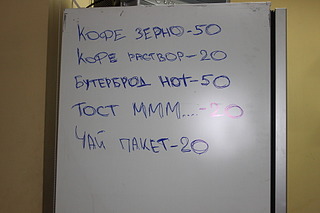 КОФЕ ЗЕРНО-50
КОФЕ РАСТВОР-20
БУТЕРБРОД НОТ-50
ТОСТ МММ...-20
ЧАЙ ПАКЕТ-20